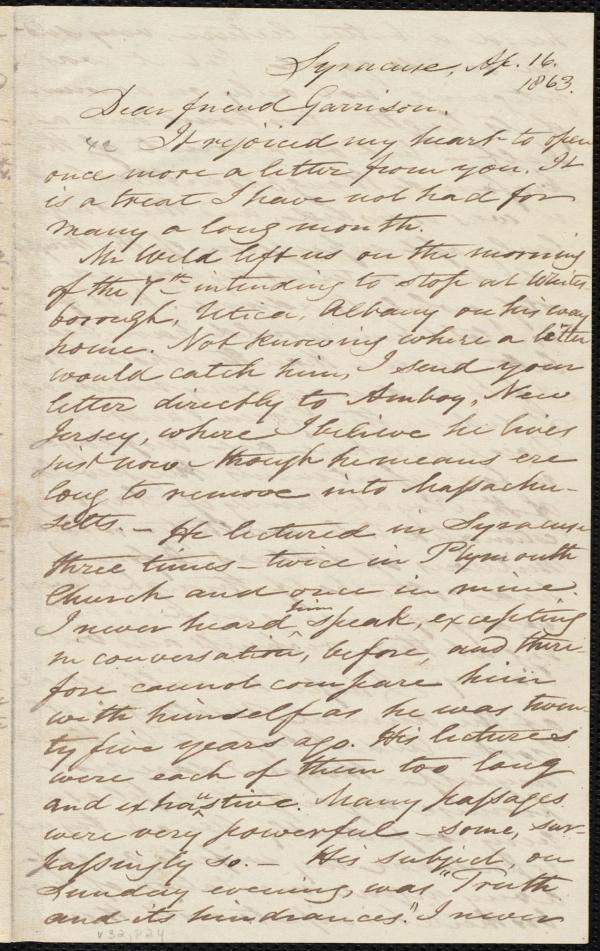 Syracuse, Ap. 16.
1863.
Dear friend Garrison.
It rejoiced my heart to open
once more a letter from you. It
is a treat I have not had for
many a long month.
Mr Weld left us on the morning
of the 7th intending to stop at Whites-
borough, Utica, Albany on his way
home. Not knowing where a letter
would catch him, I send your
letter directly to Amboy, New
Jersey, where I believe he lives
just now - though he means ere
long to remove into Massachu-
setts. - He lectured in Syracuse
three times - twice in Plymouth
Church and once in mine.
I never heard him speak, excepting
in conversation, before, and there-
fore cannot compare him
with himself as he was twen-
ty five years ago. His lectures
were each of them too long
and exhaustive. Many passages
were very powerful - some, sur-
passingly so. - His subject, on
Sunday evening, was "Truth
and its hindrances." I never
v.32, p.24